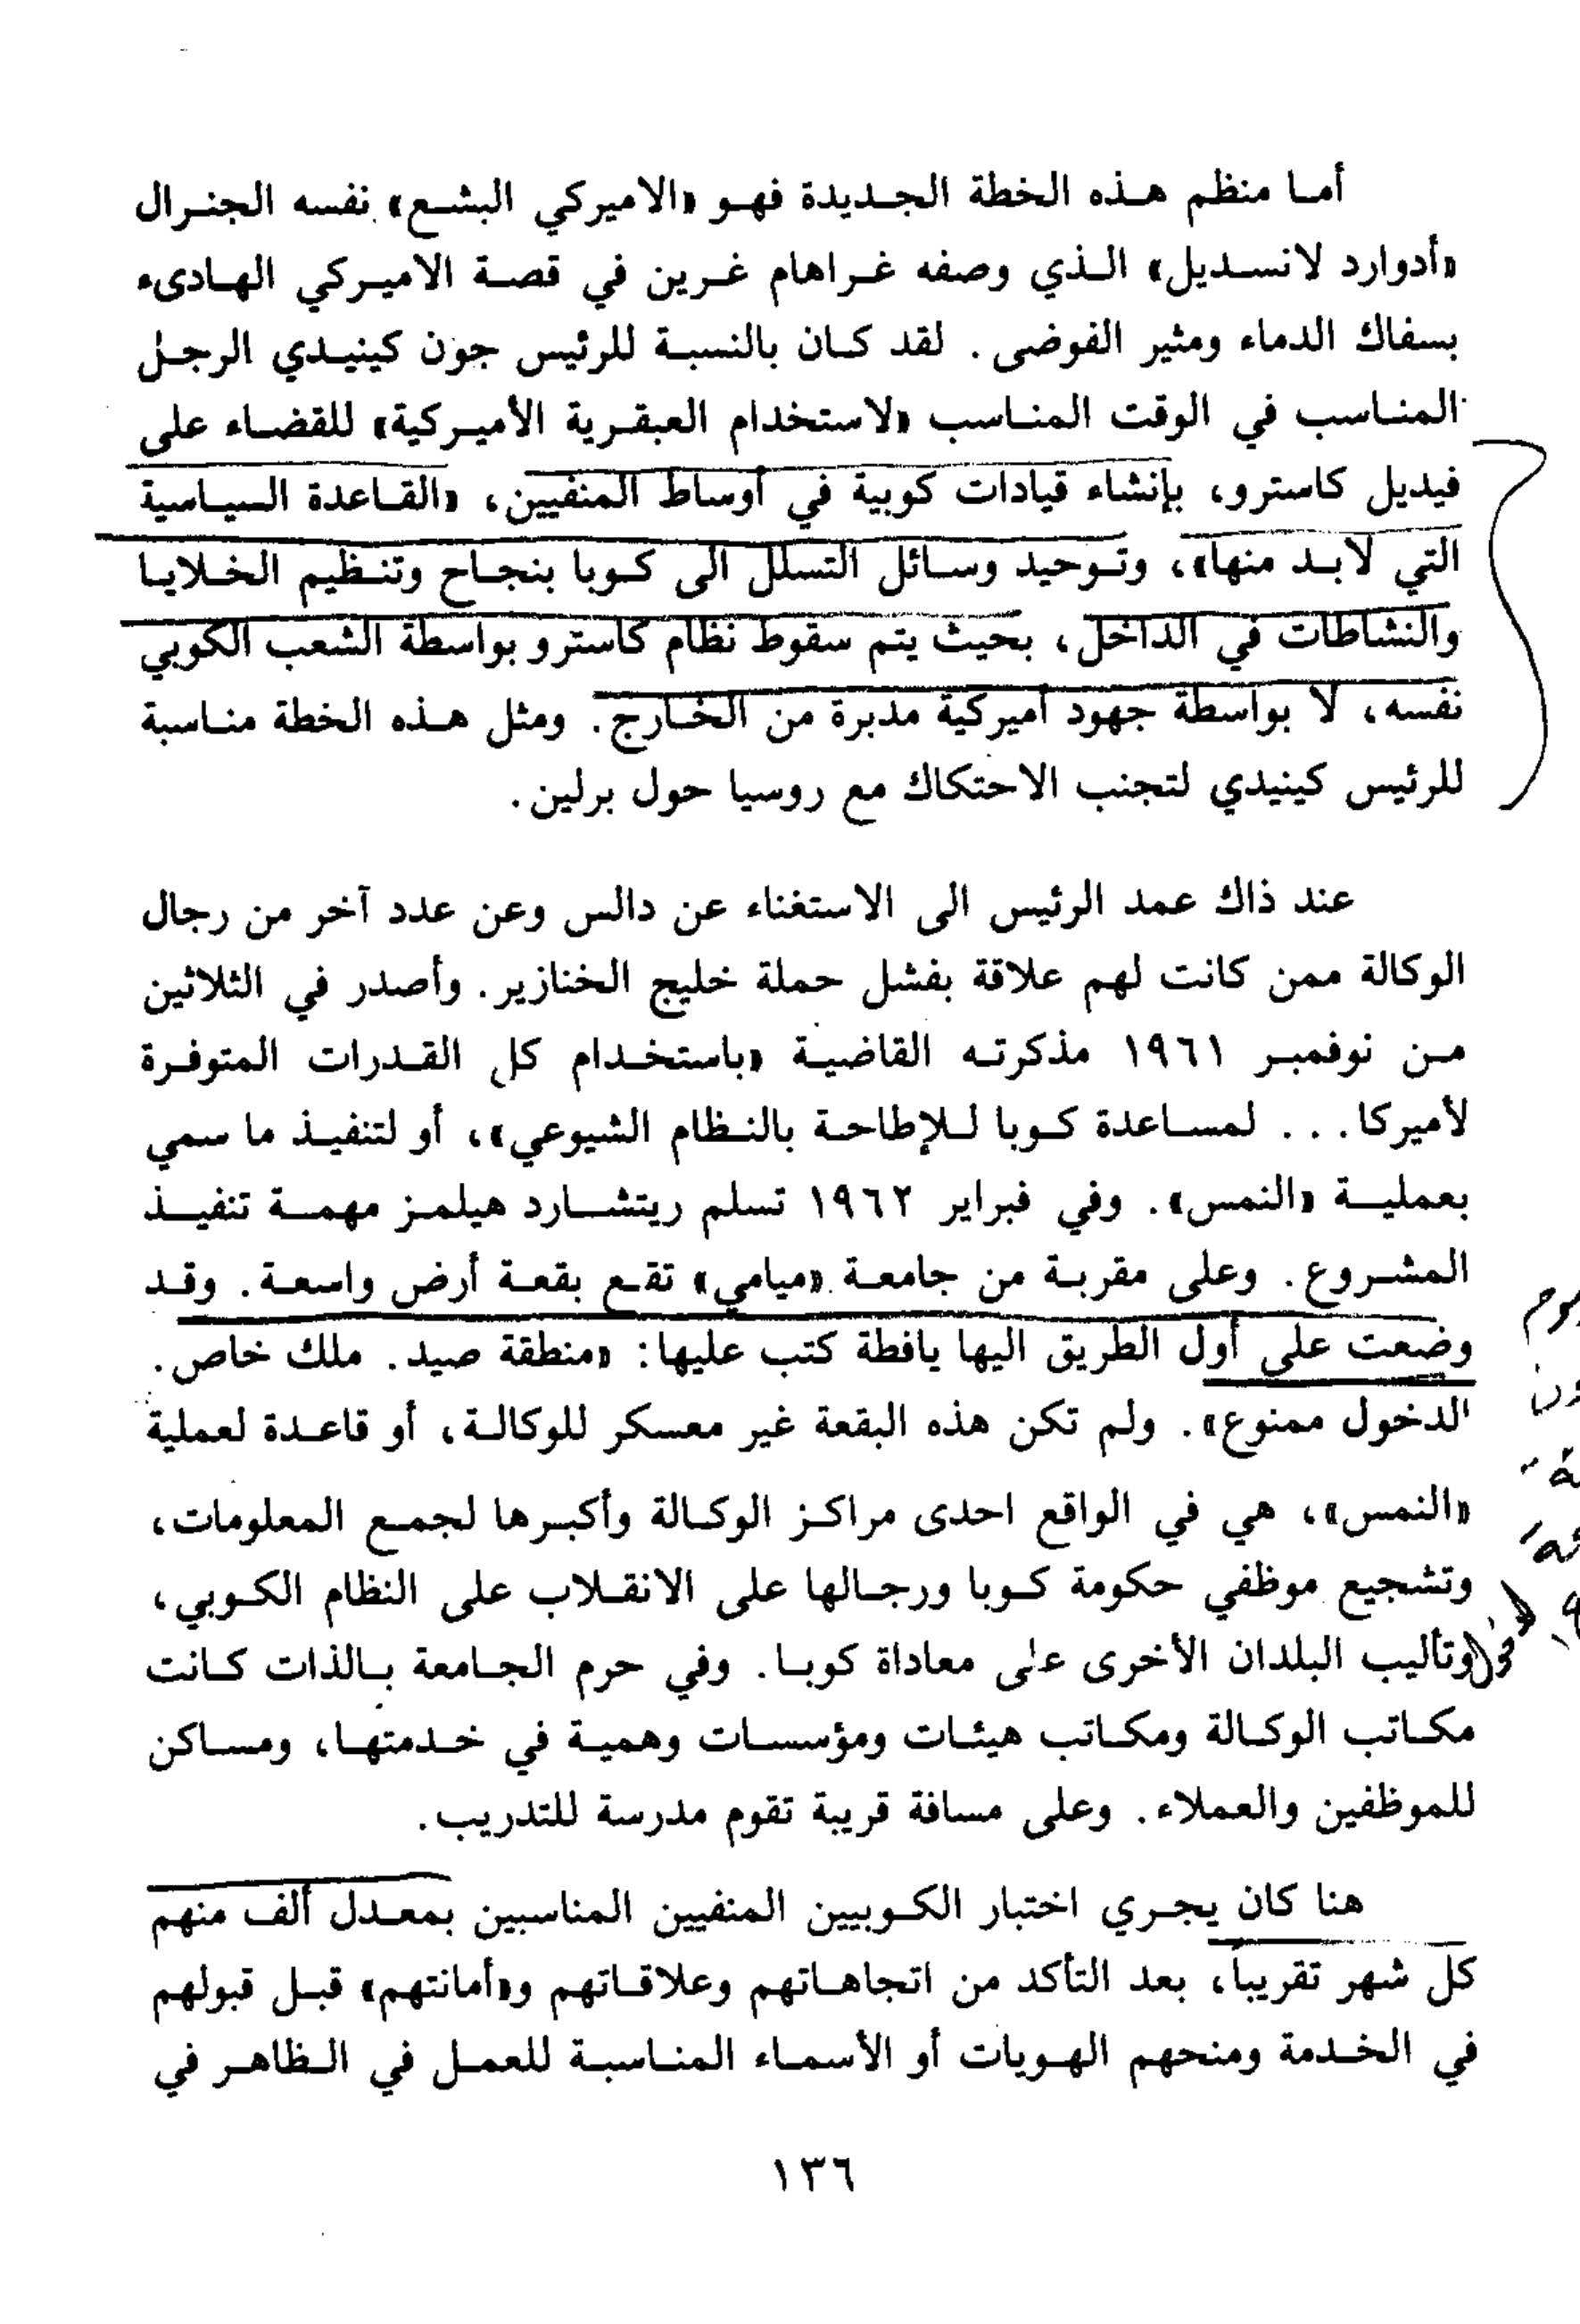 أما منظم هذه الخطة الجديدة فهو «الاميركي البشع» نفسه الجنرال
«أدوارد لانسديل» الذي وصفه غراهام غرين في قصة الاميركي الهادىء
بسفاك الدماء ومثير الفوضى. لقد كان بالنسبة للرئيس جون كينيدي الرجل
المناسب في الوقت المناسب «لاستخدام العبقرية الأميركية» للقضاء على
فيديل كاسترو، بإنشاء قيادات كوبية في أوساط المنفيين، «القاعدة السياسية
التي لابد منها»، وتوحيد وسائل التسلل الى كوبا بنجاح وتنظيم الخلايا
والنشاطات في الداخل، بحيث يتم سقوط نظام كاسترو بواسطة الشعب الكوبي
نفسه، لا بواسطة جهود أميركية مدبرة من الخارج. ومثل هذه الخطة مناسبة
للرئيس كينيدي لتجنب الاحتكاك مع روسيا حول برلين.
عند ذاك عمد الرئيس الى الاستغناء عن دالس وعن عدد آخر من رجال
الوكالة ممن كانت لهم علاقة بفشل حملة خليج الخنازير. وأصدر في الثلاثين
من نوفمبر ١٩٦١ مذكرته القاضية «باستخدام كل القدرات المتوفرة
لأميركا... لمساعدة كوبا للإطاحة بالنظام الشيوعي»، أو لتنفيذ ما سمي
بعملية «النمس». وفي فبراير ١٩٦٢ تسلم ريتشارد هيلمز مهمة تنفيذ
المشروع. وعلى مقربة من جامعة «ميامي» تقع بقعة أرض واسعة. وقد
وضعت على أول الطريق اليها يافطة كتب عليها: «منطقة صيد. ملك خاص.
الدخول ممنوع». ولم تكن هذه البقعة غير معسكر للوكالة، أو قاعدة لعملية
«النمس»، هي في الواقع احدى مراكز الوكالة وأكبرها لجمع المعلومات،
وتشجيع موظفي حكومة كوبا ورجالها على الانقلاب على النظام الكوبي،
وتأليب البلدان الأخرى على معاداة كوبا. وفي حرم الجامعة بالذات كانت
مكاتب الوكالة ومكاتب هيئات ومؤسسات وهمية في خدمتها، ومساكن
للموظفين والعملاء. وعلى مسافة قريبة تقوم مدرسة للتدريب.
هنا كان يجري اختبار الكوبيين المنفيين المناسبين بمعدل ألف منهم
كل شهر تقريباً، بعد التأكد من اتجاهاتهم وعلاقاتهم و«أمانتهم» قبل قبولهم
في الخدمة ومنحهم الهويات أو الأسماء المناسبة للعمل في الظاهر في
١٣٦